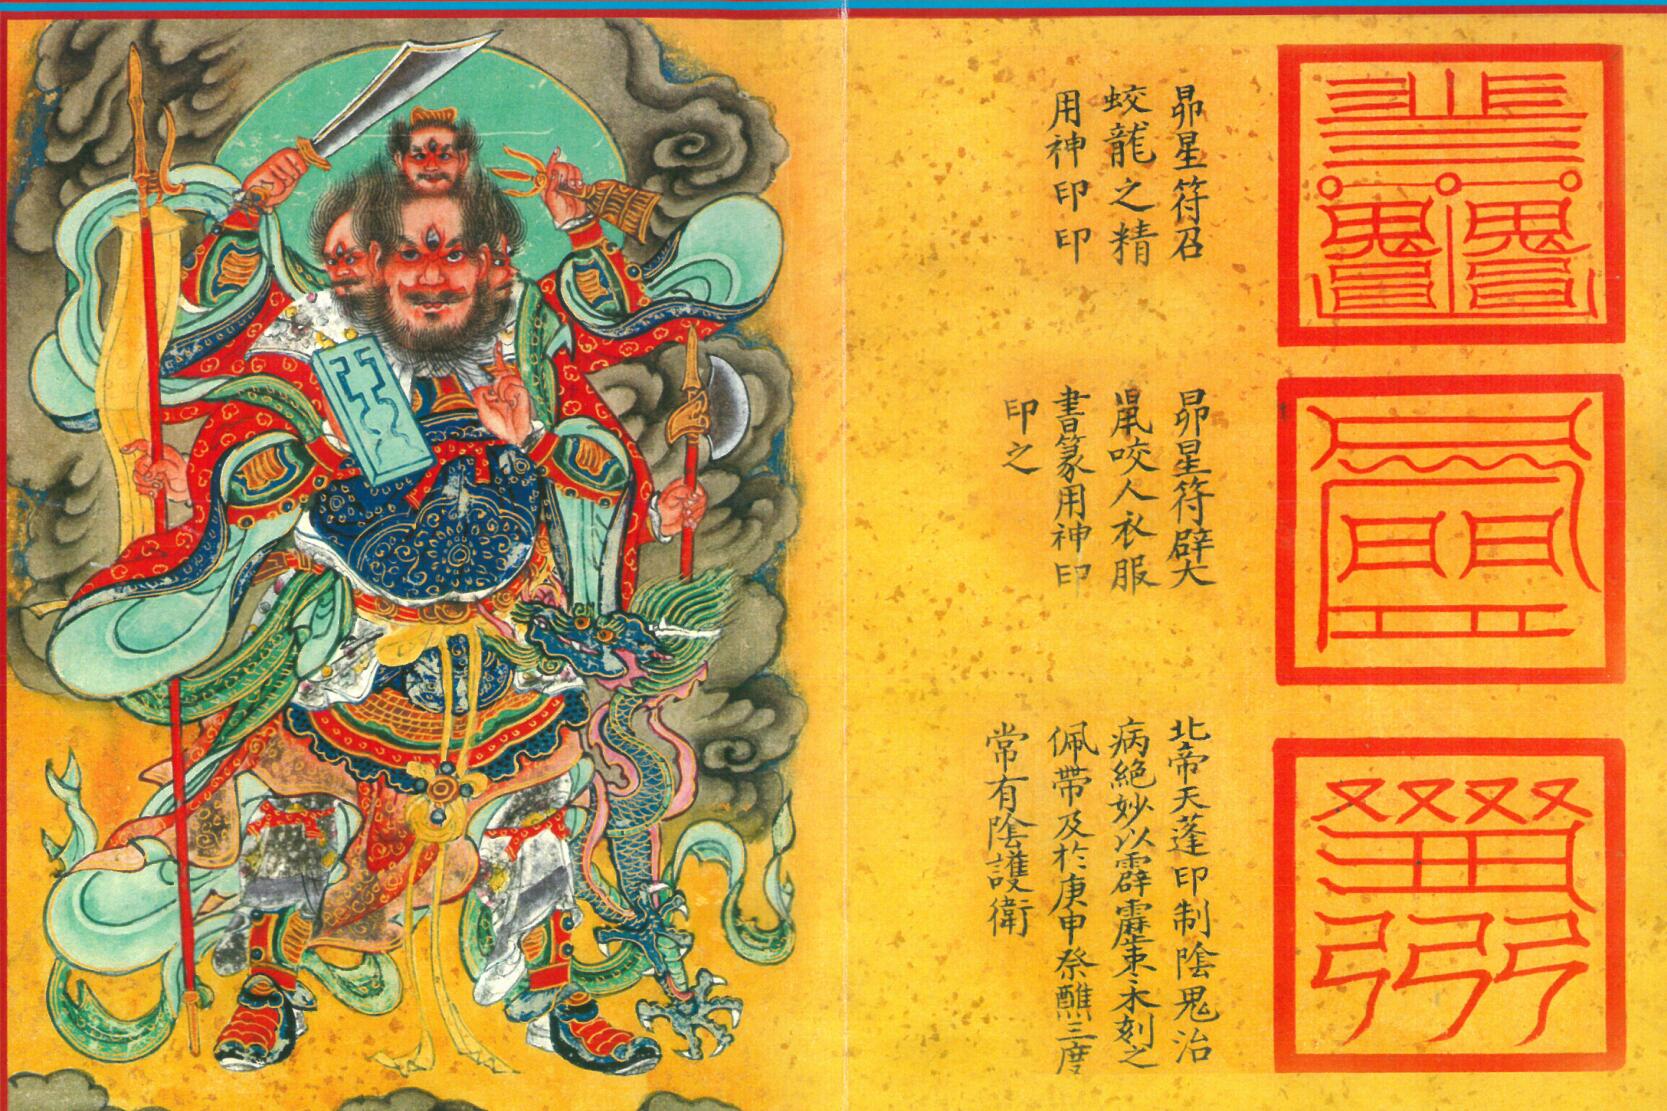 昴星符召
蛟龍之精
用神印印
昴星符辟大
鼠咬人衣服
書篆用神印
印之
北帝天蓬印制陰鬼治
病絕妙以霹靂棗木刻之
佩帶及於庚申祭醮三度
常有陰護衛